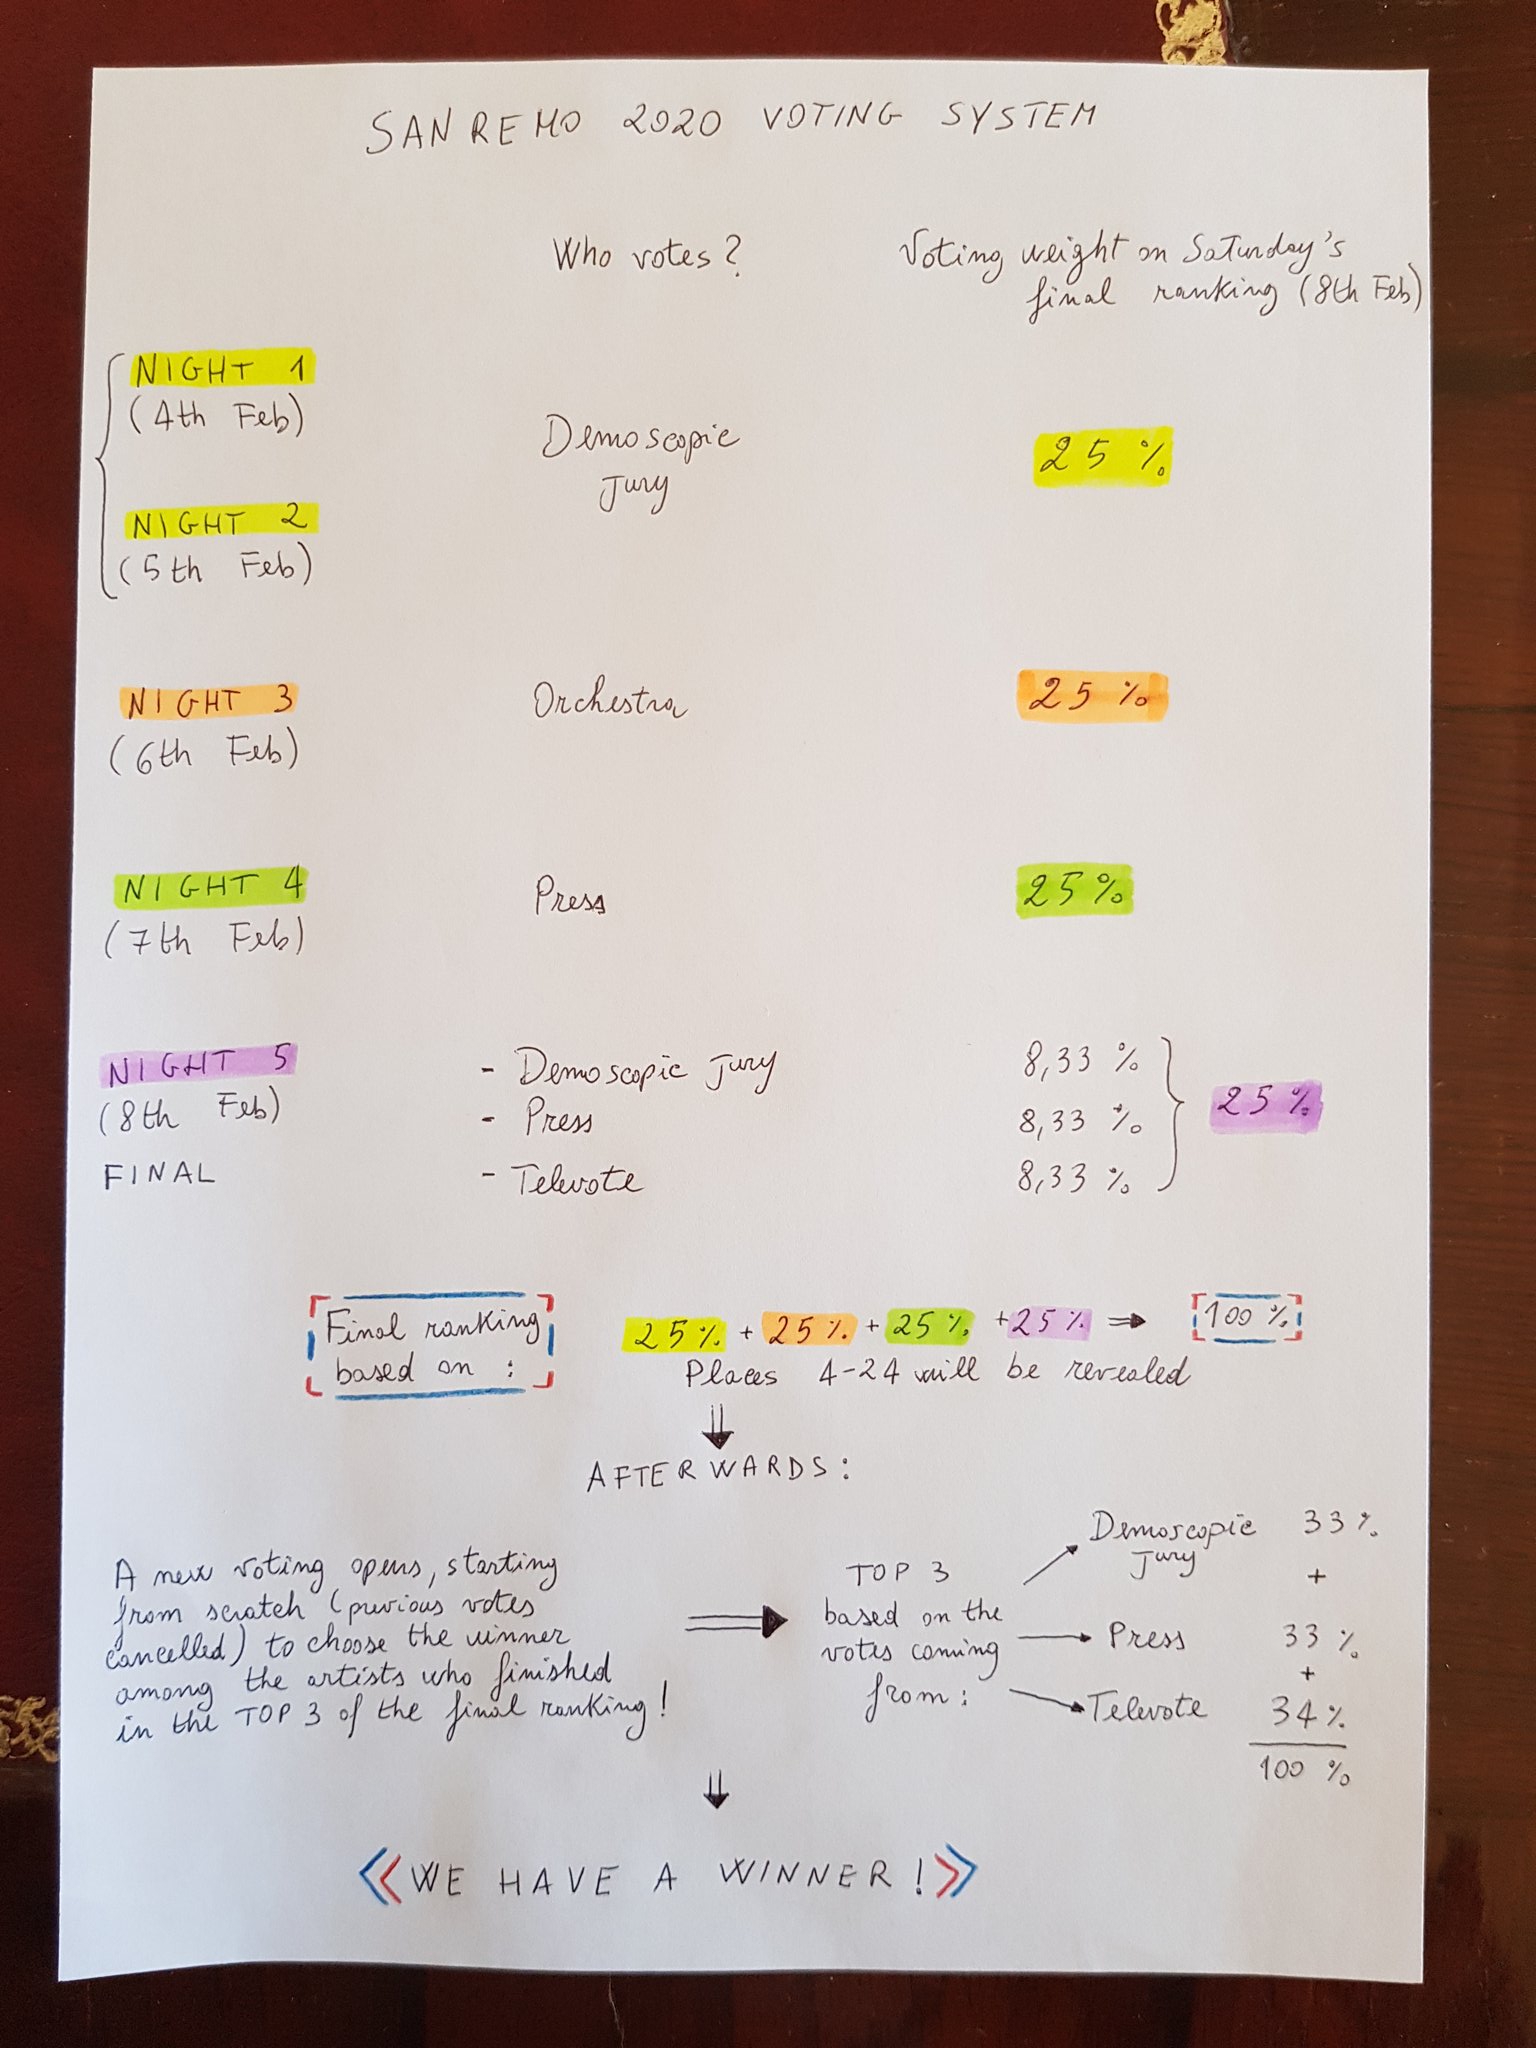 SANREMO 2020 VOTING SYSTEM
Who votes?
Voting weight on Saturday's
final ranking (8th Feb)
NIGHT 1
(4th Feb)
Demoscopic
Jury
25 %
NIGHT 2
(5th Feb)
NIGHT 3
(6th Feb)
Orchestra
25 %
NIGHT 4
(7th Feb)
Press
25%
NIGHT 5
(8th Feb)
FINAL
- Demoscopic Jury 8,33 %
- Press 8,33 %
- Televote 8,33 %
25 %
Final ranking
based on :
25% + 25% + 25% + 25% ⇒ 100 %
Places 4-24 will be revealed
⇓
AFTERWARDS:
A new voting opens, starting
from scratch (previous votes
cancelled) to choose the winner
among the artists who finished
in the TOP 3 of the final ranking!
⇒
TOP 3
based on the
votes coming
from:
→ Demoscopic Jury 33%
+
→ Press 33 %
+
→ Televote 34%
100 %
⇓
«WE HAVE A WINNER!»